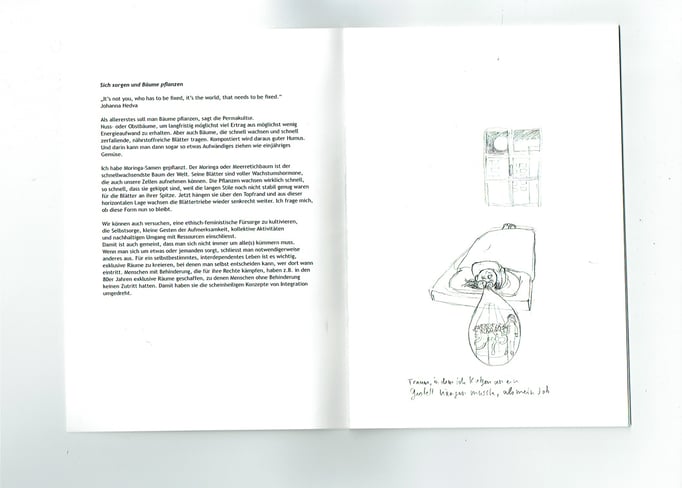 Sich sorgen und Bäume pflanzen
„It's not you, who has to be fixed, it's the world, that needs to be fixed."
Johanna Hedva
Als allererstes soll man Bäume pflanzen, sagt die Permakultur.
Nuss- oder Obstbäume, um langfristig möglichst viel Ertrag aus möglichst wenig
Energieaufwand zu erhalten. Aber auch Bäume, die schnell wachsen und schnell
zerfallende, nährstoffreiche Blätter tragen. Kompostiert wird daraus guter Humus.
Und darin kann man dann sogar so etwas Aufwändiges ziehen wie einjähriges
Gemüse.
Ich habe Moringa-Samen gepflanzt. Der Moringa oder Meerrettichbaum ist der
schnellwachsendste Baum der Welt. Seine Blätter sind voller Wachstumshormone,
die auch unsere Zellen aufnehmen können. Die Pflanzen wachsen wirklich schnell,
so schnell, dass sie gekippt sind, weil die langen Stile noch nicht stabil genug waren
für die Blätter an ihrer Spitze. Jetzt hängen sie über den Topfrand und aus dieser
horizontalen Lage wachsen die Blättertriebe wieder senkrecht weiter. Ich frage mich,
ob diese Form nun so bleibt.
Wir können auch versuchen, eine ethisch-feministische Fürsorge zu kultivieren,
die Selbstsorge, kleine Gesten der Aufmerksamkeit, kollektive Aktivitäten
und nachhaltigen Umgang mit Ressourcen einschliesst.
Damit ist auch gemeint, dass man sich nicht immer um alle(s) kümmern muss.
Wenn man sich um etwas oder jemanden sorgt, schliesst man notwendigerweise
anderes aus. Für ein selbstbestimmtes, interdependentes Leben ist es wichtig,
exklusive Räume zu kreieren, bei denen man selbst entscheiden kann, wer dort wann
eintritt. Menschen mit Behinderung, die für ihre Rechte kämpfen, haben z.B. in den
80er Jahren exklusive Räume geschaffen, zu denen Menschen ohne Behinderung
keinen Zutritt hatten. Damit haben sie die scheinheiligen Konzepte von Integration
umgedreht.
Traum, in dem ich Katzen an ein
Gestell hängen musste, als mein Job